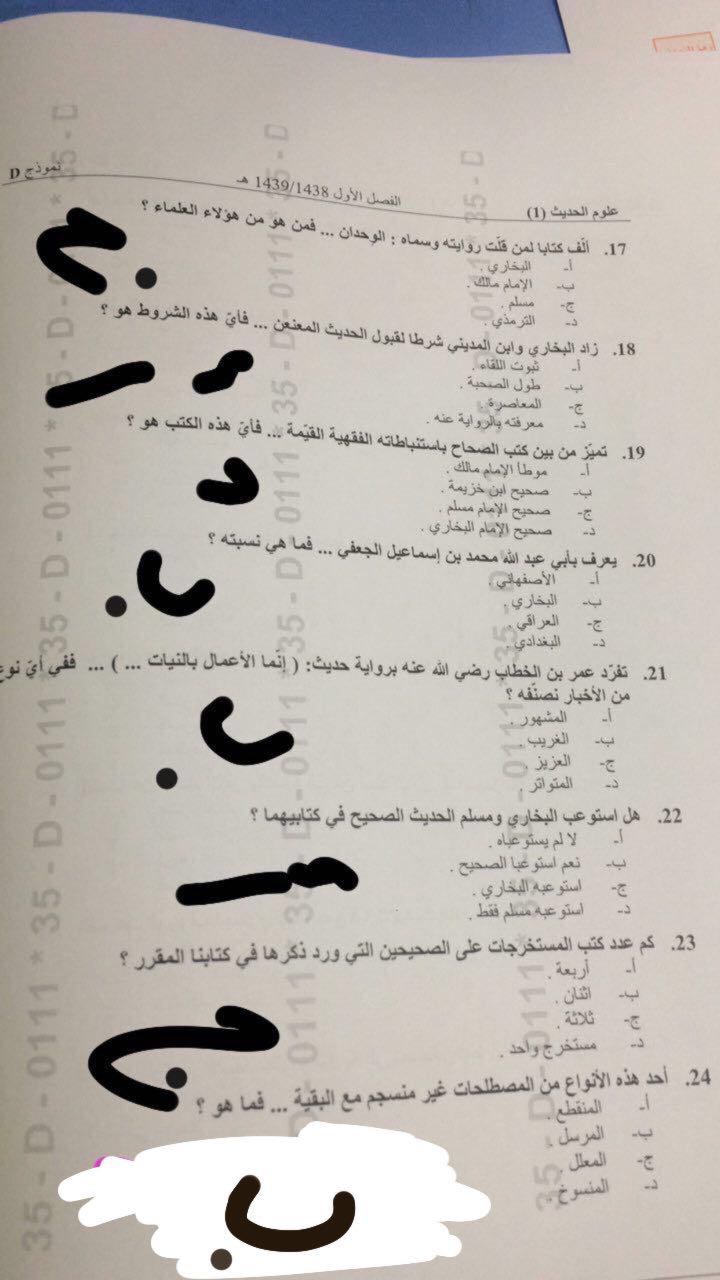 علوم الحديث (1) الفصل الأول 1439/1438 هـ نموذج D
17. ألف كتابا لمن قلّت روايته وسماه : الوحدان ... فمن هو من هؤلاء العلماء ؟
أ- البخاري .
ب- الإمام مالك .
ج- مسلم .
د- الترمذي .
ج
18. زاد البخاري وابن المديني شرطا لقبول الحديث المعنعن ... فأيّ هذه الشروط هو ؟
أ- ثبوت اللقاء .
ب- طول الصحبة .
ج- المعاصرة .
د- معرفته بالرواية عنه .
أ
19. تميّز من بين كتب الصحاح باستنباطاته الفقهية القيّمة ... فأيّ هذه الكتب هو ؟
أ- موطأ الإمام مالك .
ب- صحيح ابن خزيمة .
ج- صحيح الإمام مسلم .
د- صحيح الإمام البخاري .
د
20. يعرف بأبي عبد الله محمد بن إسماعيل الجعفي ... فما هي نسبته ؟
أ- الأصفهاني .
ب- البخاري .
ج- العراقي .
د- البغدادي .
ب
21. تفرّد عمر بن الخطاب رضي الله عنه برواية حديث: ( إنّما الأعمال بالنيات ... ) ... ففي أيّ نوع
من الأخبار نصنّفه ؟
أ- المشهور .
ب- الغريب .
ج- العزيز .
د- المتواتر .
ب
22. هل استوعب البخاري ومسلم الحديث الصحيح في كتابيهما ؟
أ- لا لم يستوعباه .
ب- نعم استوعبا الصحيح .
ج- استوعبه البخاري .
د- استوعبه مسلم فقط .
أ
23. كم عدد كتب المستخرجات على الصحيحين التي ورد ذكرها في كتابنا المقرر ؟
أ- أربعة .
ب- اثنان .
ج- ثلاثة .
د- مستخرج واحد .
ج
24. أحد هذه الأنواع من المصطلحات غير منسجم مع البقية ... فما هو ؟
أ- المنقطع .
ب- المرسل .
ج- المعلل .
د- المنسوخ .
ب
35 - D - 0111 * 35 - D - 0111 * 35 - D - 0111 * 35 - D